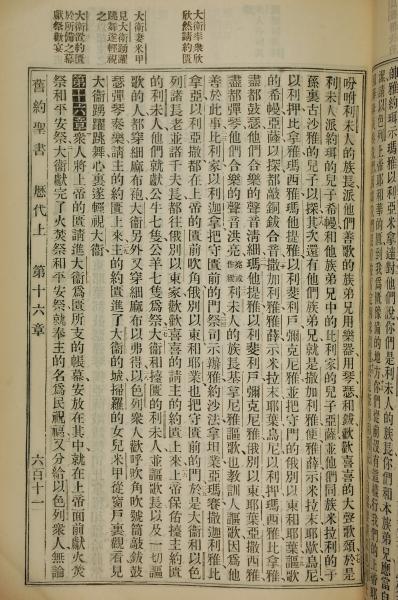 大衞率衆欣
然請約匱
大衞妻米甲
見大衞踴躍
跳舞遂輕視
之
大衞置約匱
於所備之幕
獻祭歡宴
吩咐利未人的族長派他們善歌的族弟兄用樂器用琴瑟和鈸歡歡喜喜的大聲歌頌於是
利未人派約珥的兒子希幔和他族弟兄中的比利家的兒子亞薩並他們同族米拉利的子
孫裏古沙雅的兒子以探其次還有他們族弟兄就是撒加利雅便雅薛示米拉末耶歇烏尼
以利押比拿雅瑪西雅瑪他提雅以利斐利戶彌克尼雅並把守門的俄別以東和耶葉謳歌
的希幔亞薩以探都敲銅鈸合音撒加利雅雅薛示米拉末耶歇烏尼以利押瑪西雅比拿雅
盡都鼓瑟他們合樂的聲音清細瑪他提雅以利斐利戶彌克尼雅俄別以東耶葉亞撒西雅
盡都彈琴他們合樂的聲音洪亮利未人的族長基拿尼雅謳歌也教訓人謳歌因為他
善於此事比利家以利加拿把守匱前的門祭司示雅約沙法拿坦業亞瑪賽撒迦利雅比
拿亞以利亞撒都在上帝的匱前吹角俄別以東和耶葉也把守匱前的門於是大衞和以色
列諸長老並諸千夫長都往俄別以東家歡歡喜喜的請主的約匱上來上帝保佑擡主約匱
的利未人他們就獻公牛七隻公羊七隻爲祭大衞和擡匱的利未人並謳歌長以及一切謳
歌的人都穿細麻布袍大衞另外又穿細麻布以弗得以色列衆人歡呼吹角吹號筒敲鈸鼓
瑟彈琴奏樂請主的約匱上來主的約匱進了大衞的城掃羅的女兒米甲從窗戶裏觀看見
大衞踴躍跳舞心裏遂輕視大衞
第十六章衆人將上帝的匱請進大衞爲匱所支的帳幕安放在其中就在上帝面前獻火焚
祭和平安祭大衞獻完了火焚祭和平安祭就奉主的名爲民祝福又分給以色列衆人無論
舊約聖書 歷代上 第十六章 六百十一